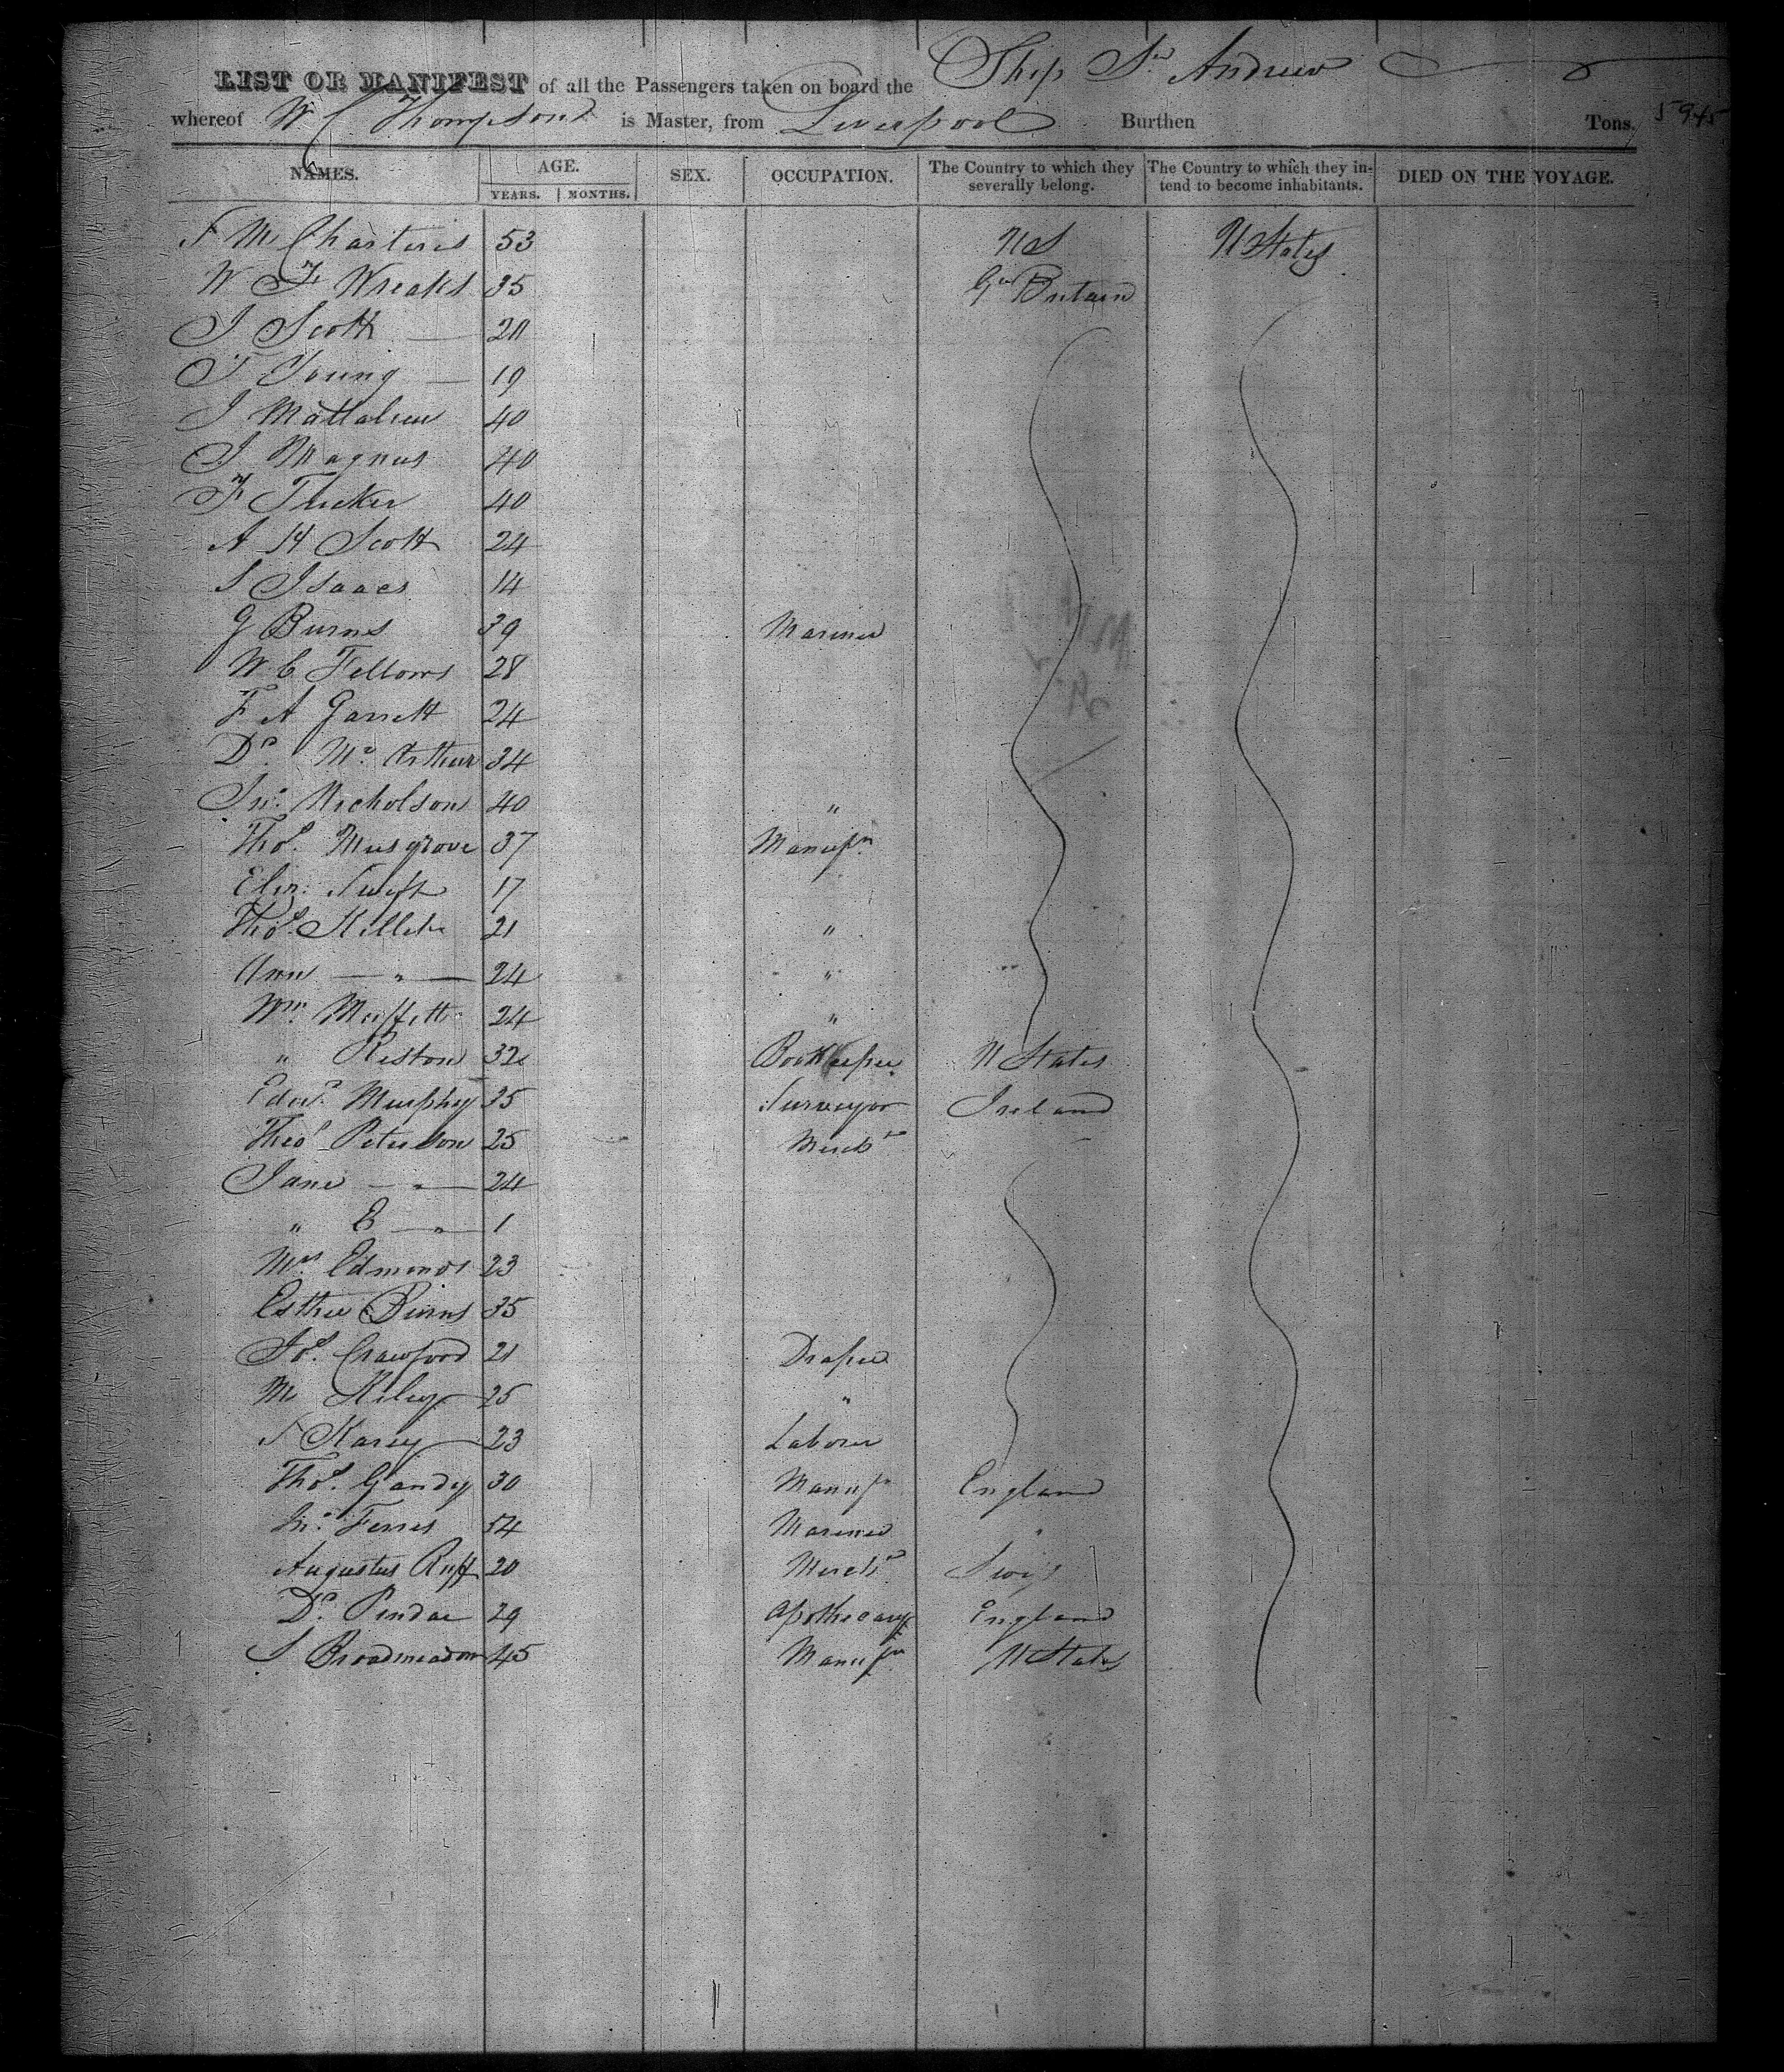 LIST OR MANIFEST of all the Passengers taken on board the Ship St. Andrew
whereof W C Thompson is Master, from Liverpool Burthen Tons. 594
NAMES. AGE. SEX. OCCUPATION. The Country to which they severally belong. The Country to which they in-tend to become inhabitants. DIED ON THE VOYAGE.
YEARS. MONTHS.
M Charteris 53 US U States
W F Wreaks 35 Gt Britain
J Scott 20
T Young 19
J 40
J Magnus 40
F Tucker 40
A H Scott 24
S Isaacs 14
G Burns 39 Mariner
W C Fellows 28
F A Garrett 24
Dr. Mc Arthur 34
Jno. Nicholson 40 "
Thos. Musgrove 37 Manufr.
Swift 17
Thos. 21 "
Ann — " — 24 "
Wm. 24 "
" 32 Bookkeeper U States
Edwd. Murphy 35 Surveyor Ireland
Peterson 25 Mercht
Jane — " — 24
" E — " — 1
Mrs. Edmonds 23
Esther Binns 35
Jos. Crawford 21 Draper
M Riley 25 "
23 Labourer
Thos. Gandy 30 Manufr England
Jno. Ferres 54 Mariner "
Augustus Ruff 20 Mercht. Swiss
Dr. 29 Apothecary England
S Broadmeadow 45 Manufr U States